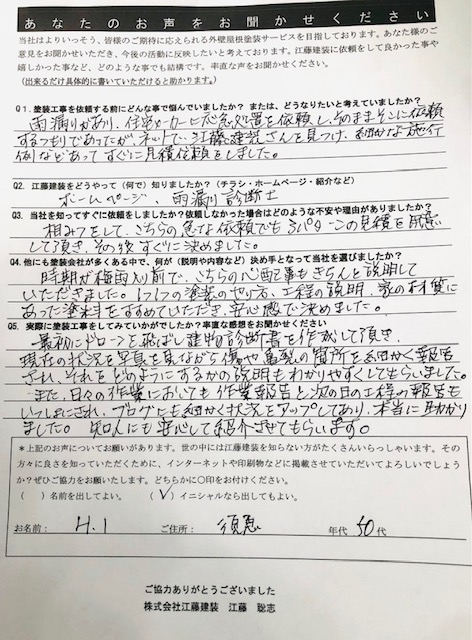 あなたのお声をお聞かせください
当社はよりいっそう、皆様のご期待に応えられる外壁屋根塗装サービスを目指しております。あなた様のご
意見をお聞かせいただき、今後の活動に反映したいと考えております。江藤建装に依頼をして良かった事や
嬉しかった事など、どのような事でも結構です。率直な声をお聞かせください。
(出来るだけ具体的に書いていただけると助かります。)
Q1.塗装工事を依頼する前にどんな事で悩んでいましたか? または、どうなりたいと考えていましたか?
雨漏りがあり、住宅メーカーに応急処置を依頼し、そのままそこに依頼
するつもりであったが、ネットで、江藤建装さんを見つけ、細かな施行
例などあってすぐに見積依頼をしました。
Q2. 江藤建装をどうやって(何で)知りましたか?(チラシ・ホームページ・紹介など)
ホームページ、雨漏り診断士
Q3. 当社を知ってすぐに依頼をしましたか?依頼しなかった場合はどのような不安や理由がありましたか?
相みつをして、こちらの急な依頼でも3パターンの見積を用意
して頂き、その後すぐに決めました。
Q4.他にも塗装会社が多くある中で、何が(説明や内容など)決め手となって当社を選びましたか?
時期が梅雨入り前で、こちらの心配事もきちんと説明して
いただきました。1つ1つの塗装のやり方、工程の説明、家の材質に
あった塗料をすすめていただき、安心感で決めました。
Q5. 実際に塗装工事をしてみていかがでしたか?率直な感想をお聞かせください
最初にドローンを飛ばし建物診断書を作成して頂き、
現在の状況を写真を見ながら傷や亀裂の箇所を細かく報告
され、それをどのようにするかの説明もわかりやすくしてもらいました。
また、日々の作業においても作業報告と次の日の工程の報告も
いつもにされ、ブログにも細かく状況をアップしてあり、本当に助かり
ました。知人にも安心して紹介させてもらいます。
*上記のお声についてお願いがあります。世の中には江藤建装を知らない方がたくさんいらっしゃいます。その
方々に良さを知っていただくために、インターネットや印刷物などに掲載させていただいてよろしいでしょう
か?ぜひご協力をお願いします。どちらかに〇印をお付けください。
( )名前を出してよい。 (✓)イニシャルなら出してもよい。
お名前: H.I ご住所: 須恵 年代 50代
ご協力ありがとうございました
株式会社江藤建装 江藤 聡志